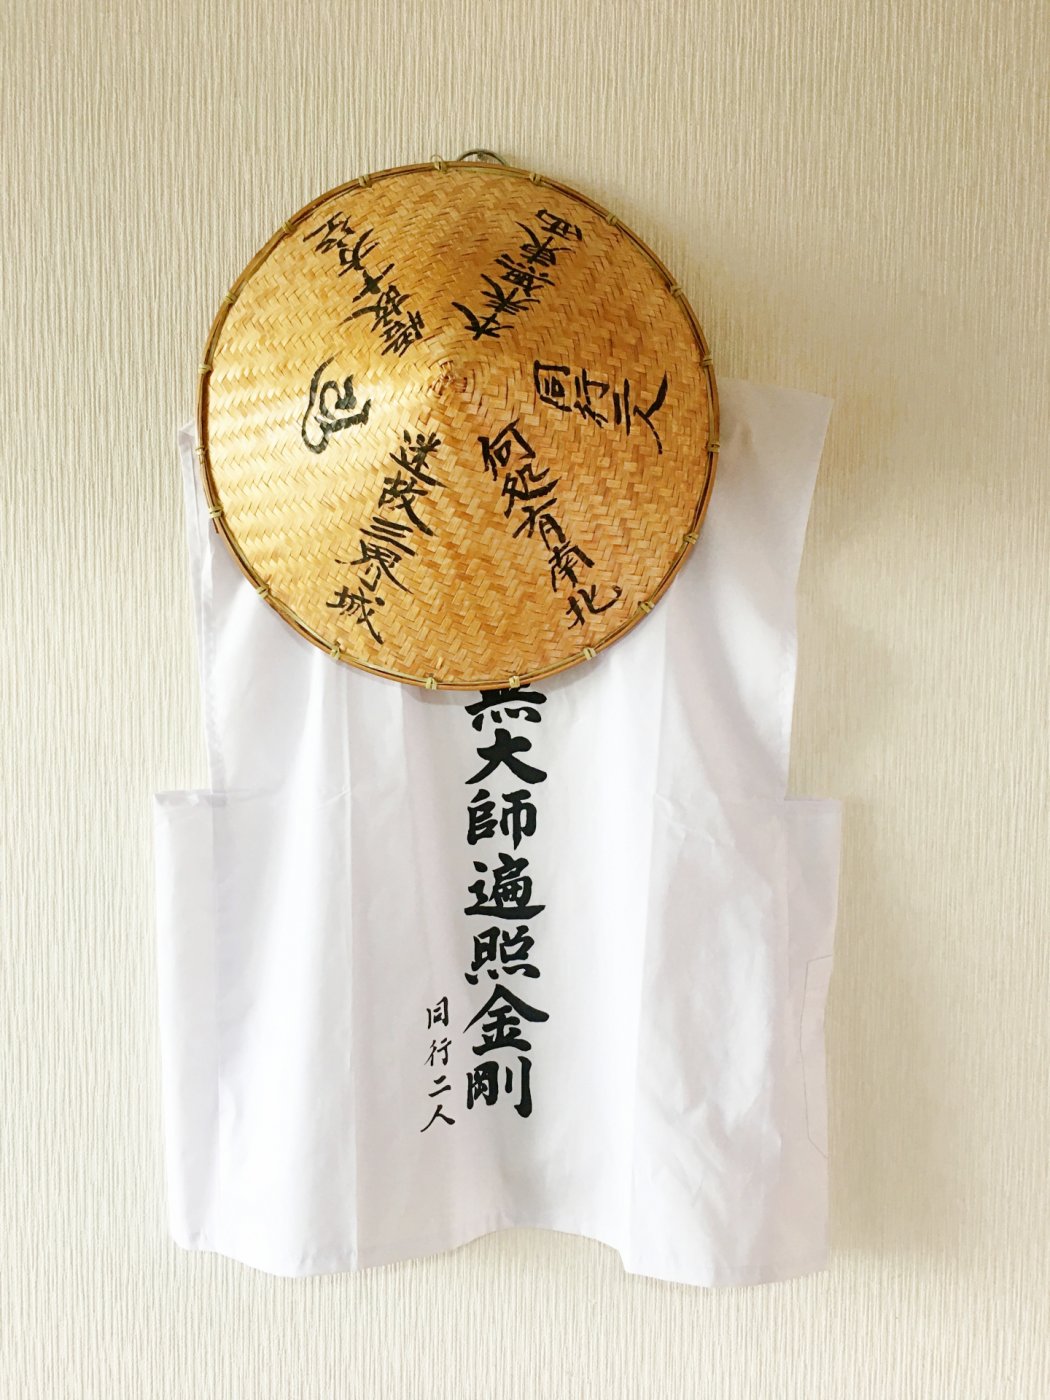 迷故三界城
悟故十方空
本来無東西
何処有南北
同行二人
無大師遍照金剛
同行二人